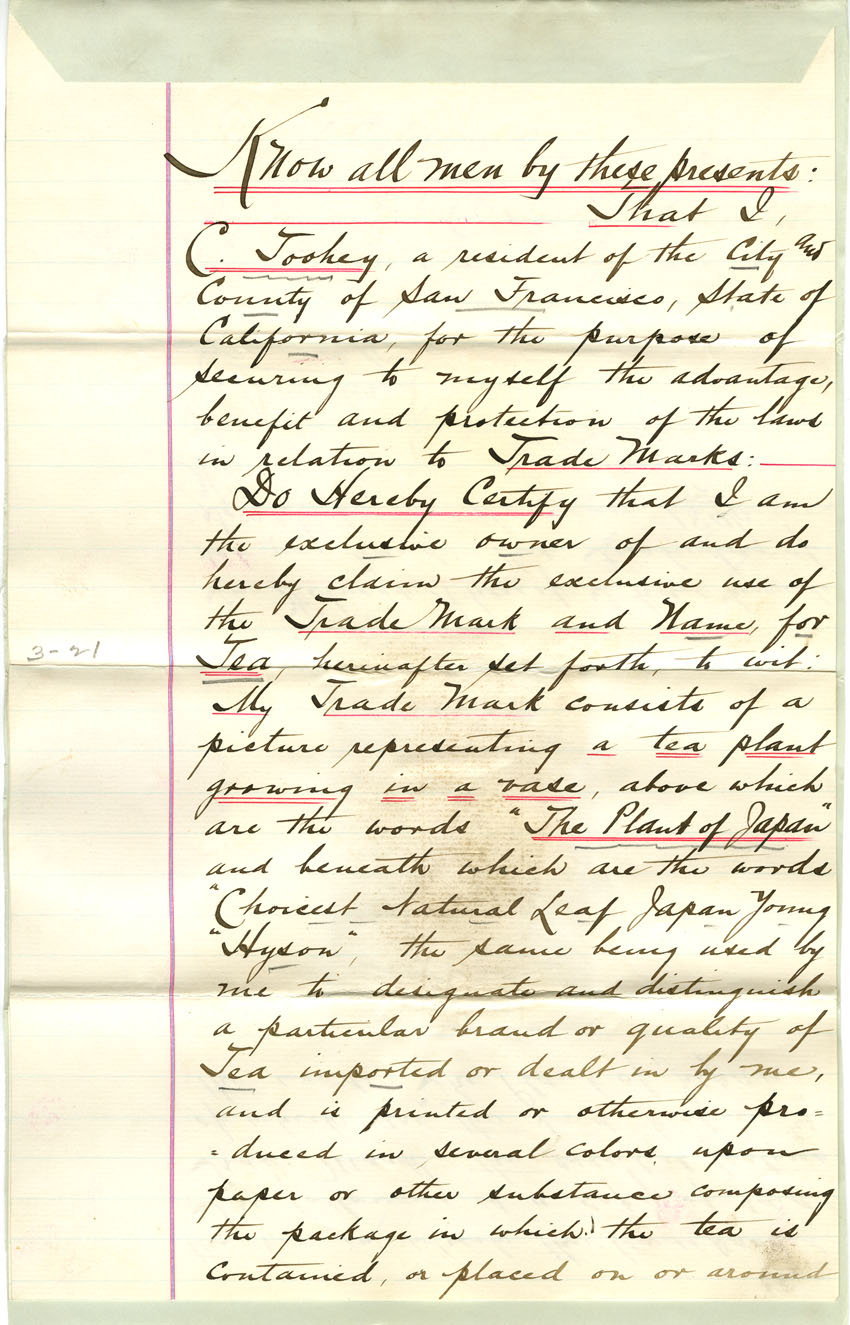 Know all men by these presents:
That I,
C. Toohey, a resident of the City and
County of San Francisco, State of
California, for the purpose of
securing to myself the advantage,
benefit and protection of the laws
in relation to Trade Marks:
Do Hereby Certify that I am
the exclusive owner of and do
hereby claim the exclusive use of
the Trade Mark and Name, for
3-21
Tea, hereinafter set forth, to wit:
My Trade Mark consists of a
picture representing a tea plant
growing in a vase, above which
are the words "The Plant of Japan"
and beneath which are the words
"Choicest Natural Leaf Japan Young
"Hyson", the same being used by
me to designate and distinguish
a particular brand or quality of
Tea imported or dealt in by me,
and is printed or otherwise pro=
=duced in several colors upon
paper or other substance composing
the package in which the tea is
contained, or placed on or around